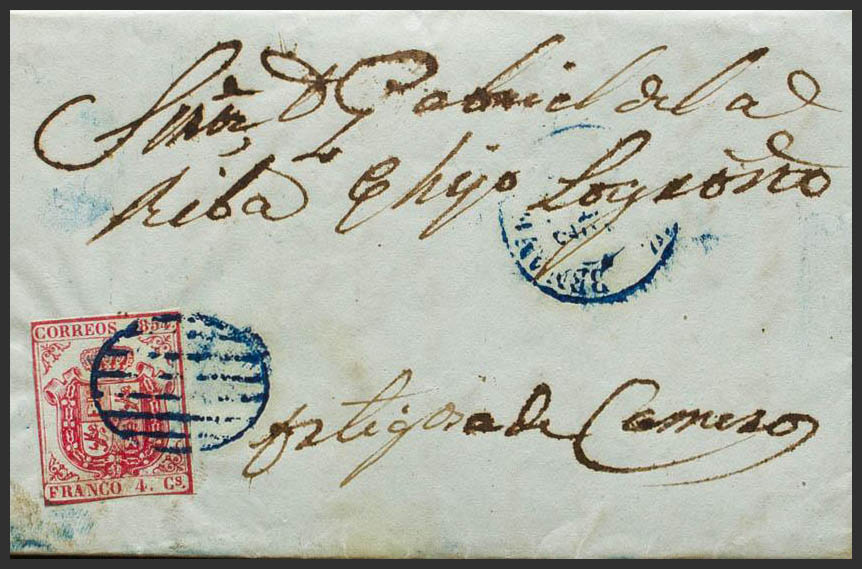 Señor D. Gabriel de la
Riba e hijo Logroño
CORREOS 1854.
FRANCO 4. Cs.
Ortigosa de Camero